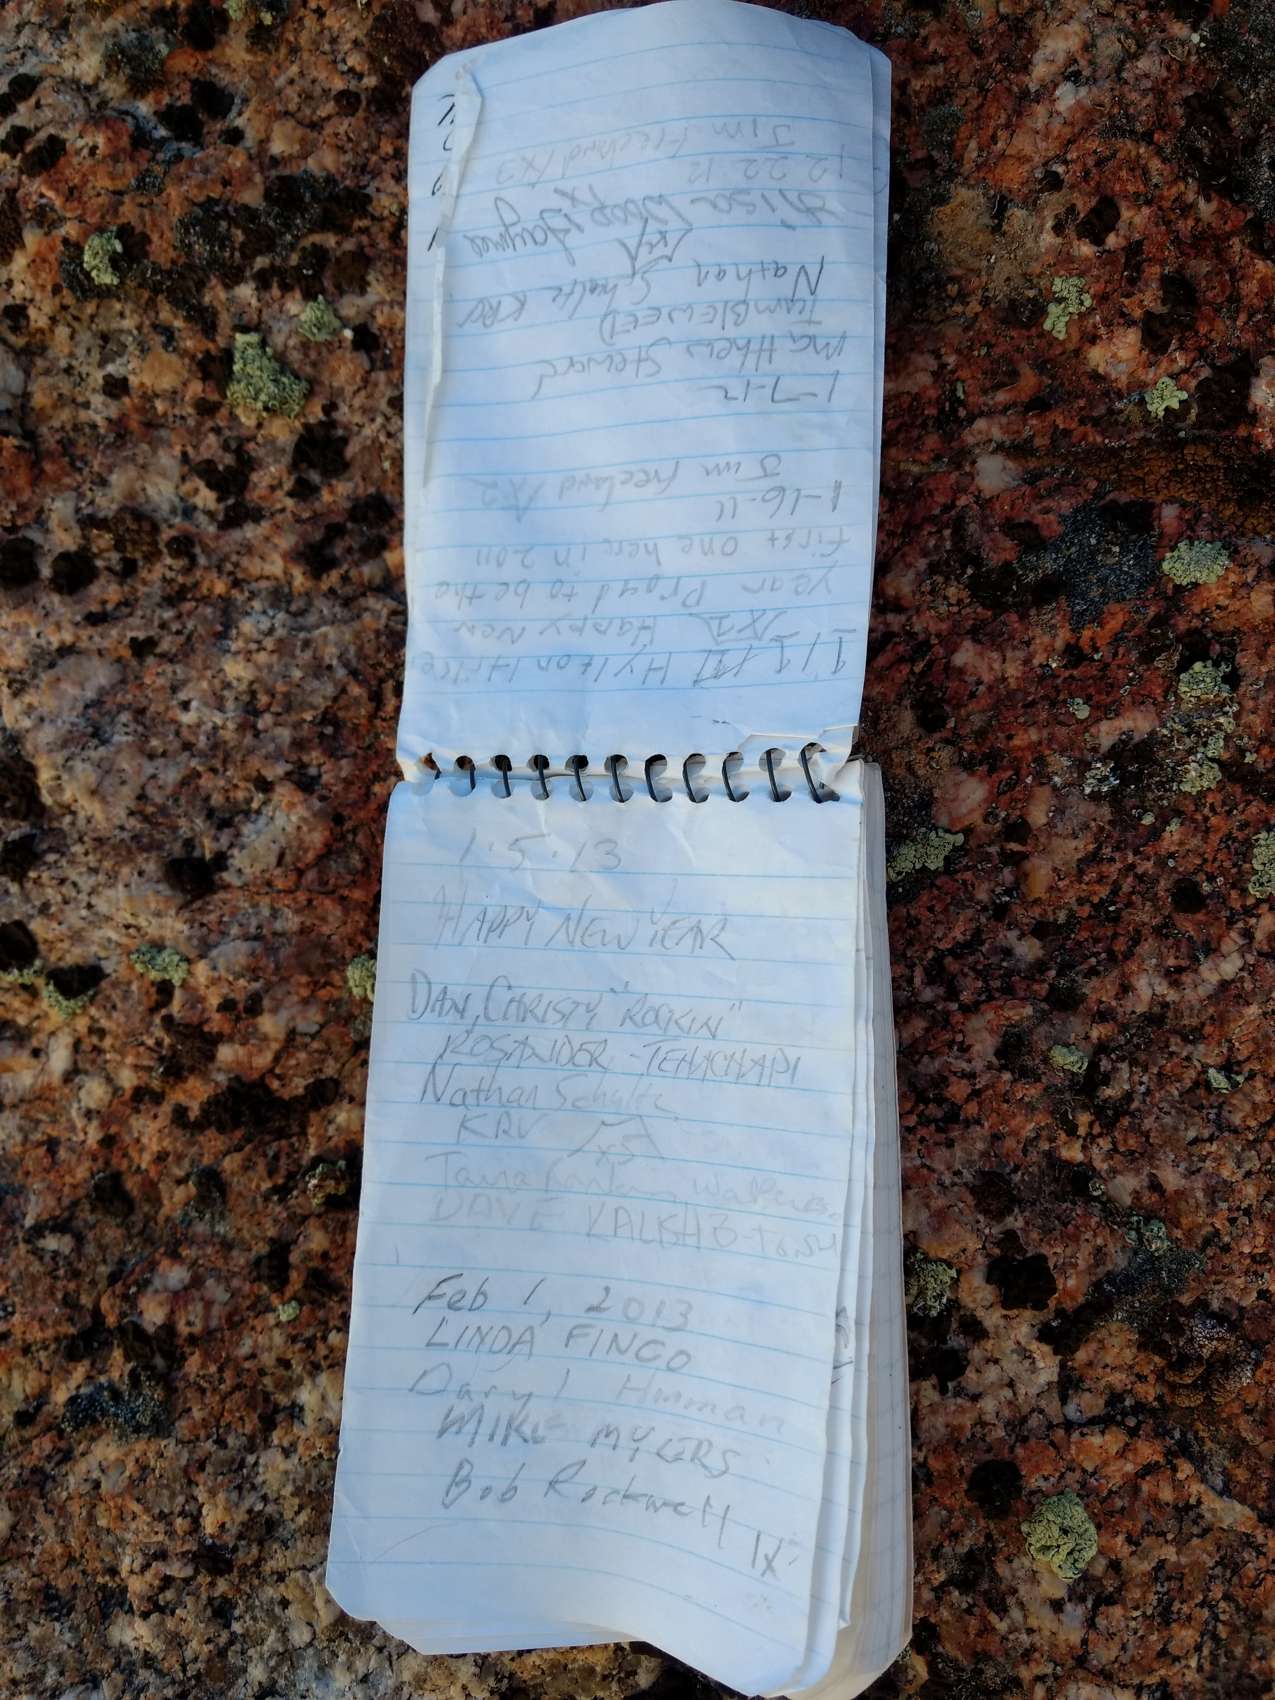 1/1/11 Hylton
1X Happy New
year Proud to be the
first one here in 2011
1-16-11
Jim Freeland 1X2
1-7-12
Matthew Steward
TumBleweeD
Nathan Schultz KRV
Lisa
12.22.12
Jim Freeland 1X3
1.5.13
HAPPY NEW YEAR
DAN, CHRISTY "ROCKIN"
ROSANDER - TEHACHAPI
Nathan Schultz
KRV 1x5
Tana
DAVE
Feb 1, 2013
LINDA FINCO
Daryl Hinman
MIKE MYERS
Bob Rockwell 1X